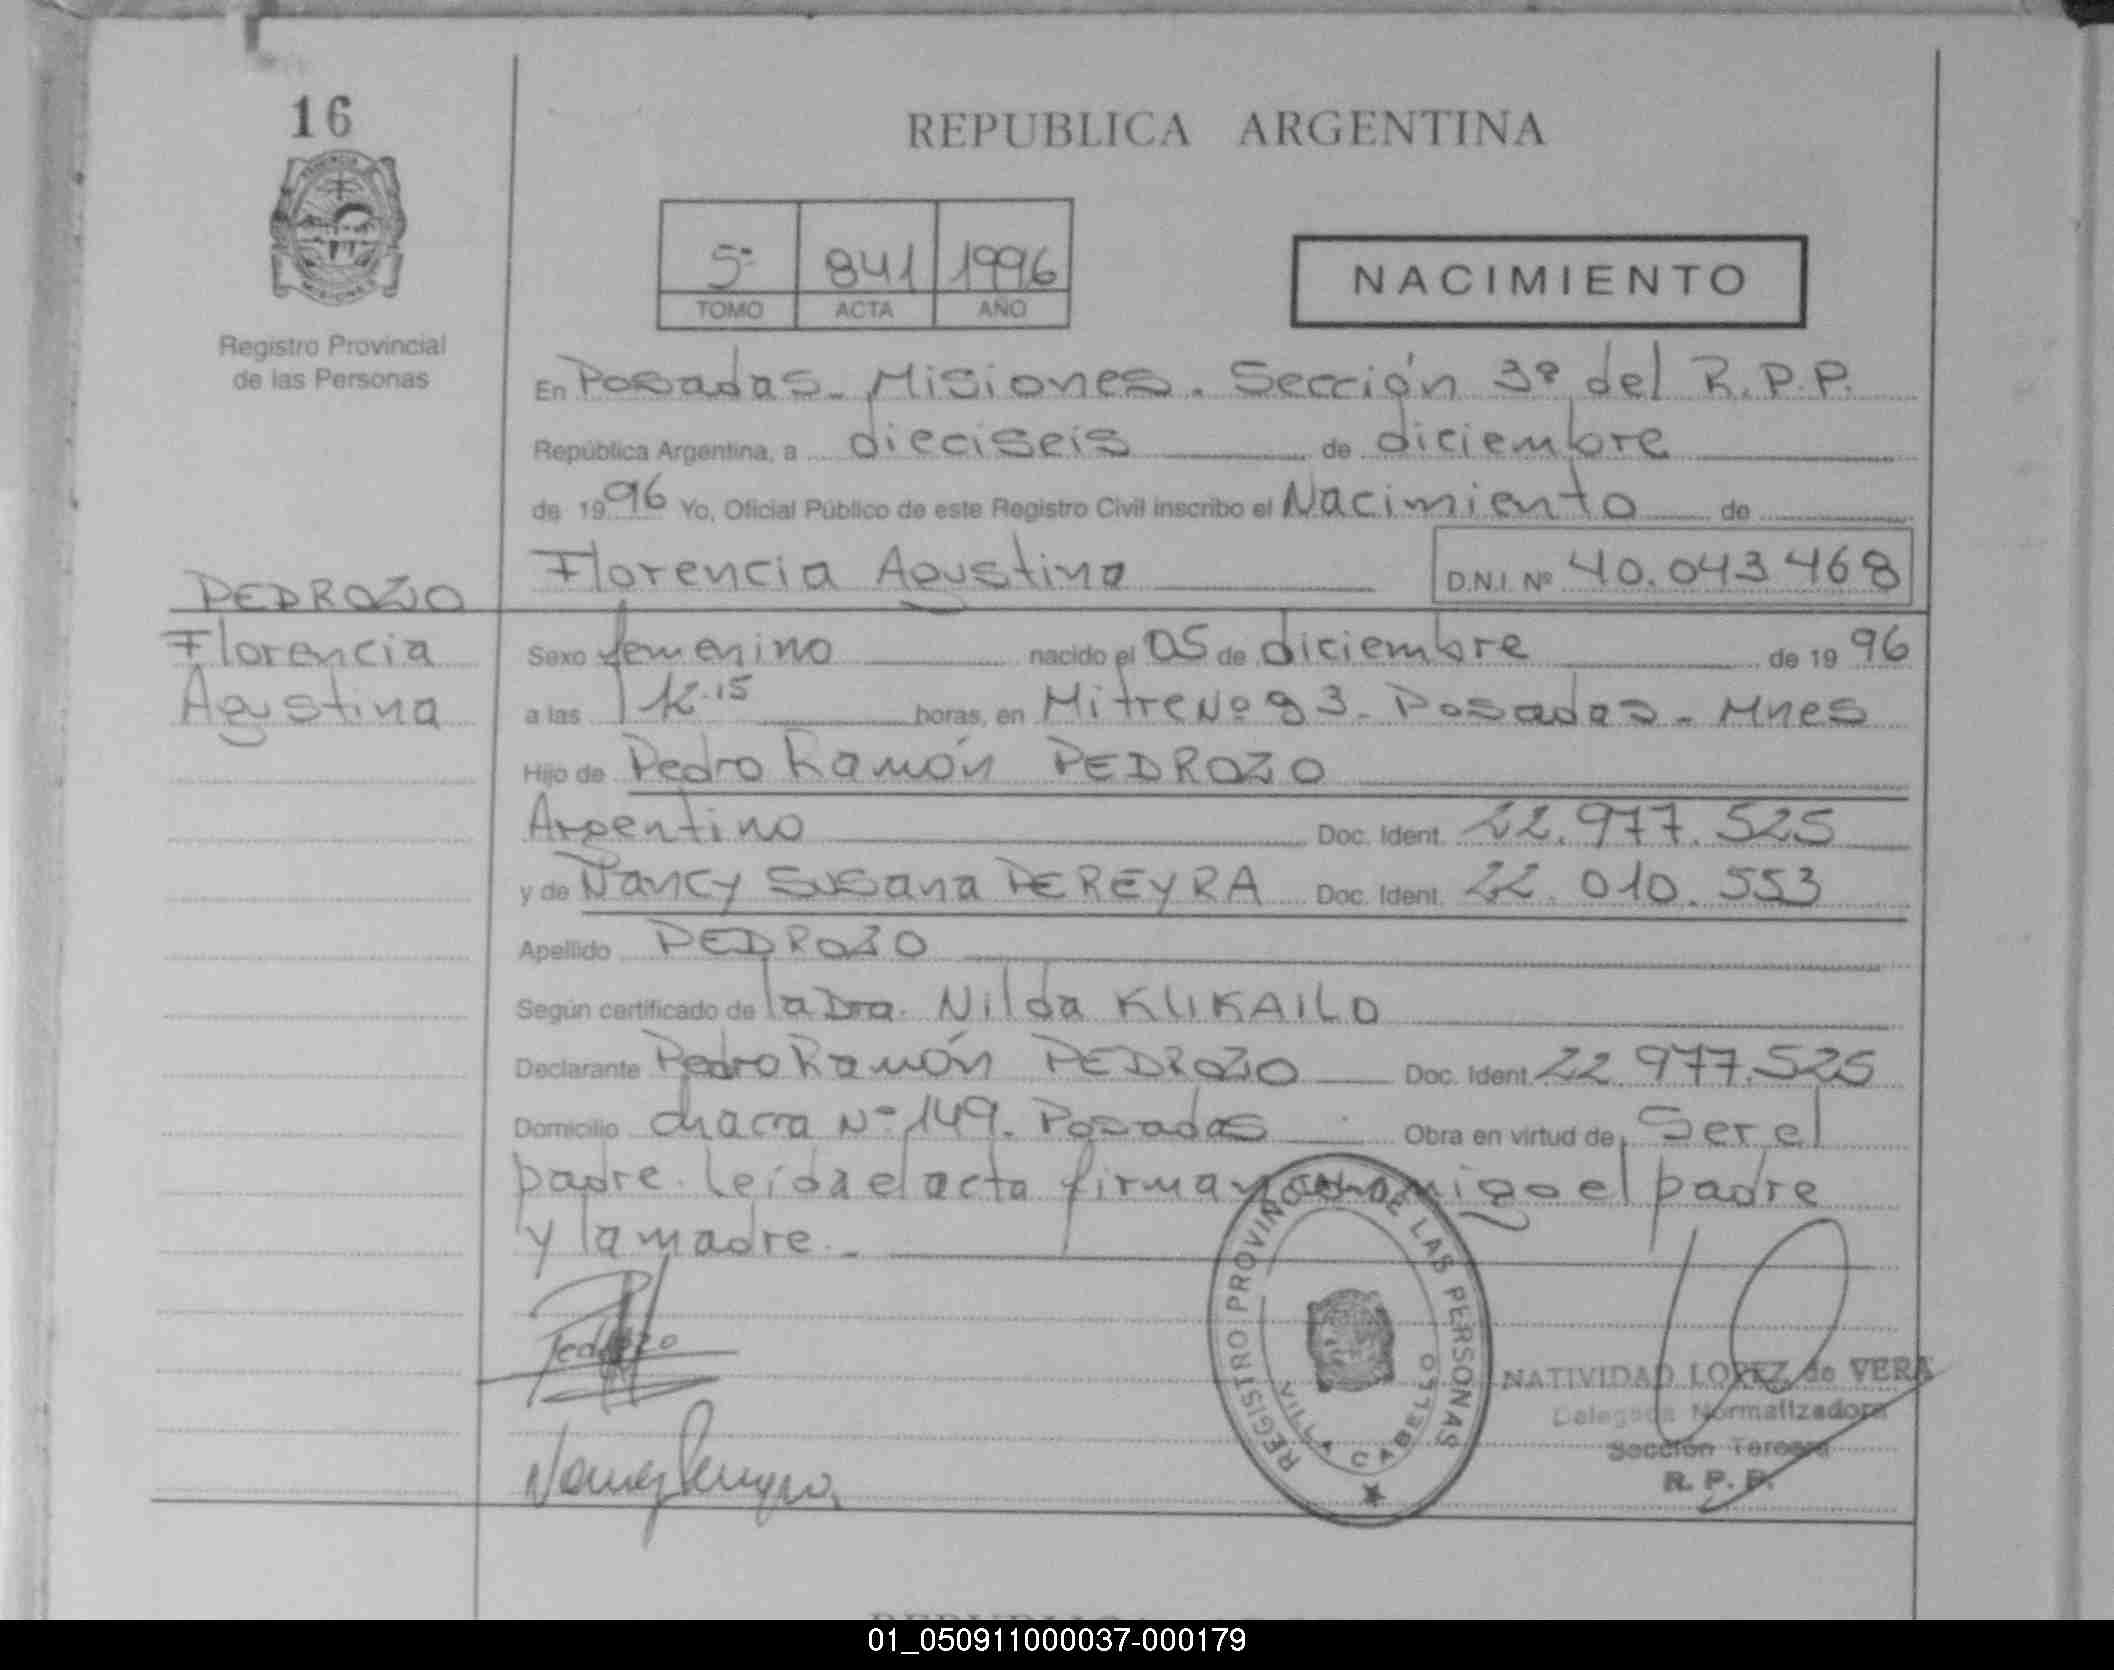 16
REPUBLICA ARGENTINA
5º 841 1996
TOMO ACTA AÑO
NACIMIENTO
Registro Provincial
de las Personas
En Posadas - Misiones. Sección 3º del R.P.P.
República Argentina, a dieciseis de diciembre
de 1996 Yo, Oficial Público de este Registro Civil inscribo el Nacimiento de
Florencia Agustina D.N.I. Nº 40.043468
PEDROZO
Florencia
Agustina
Sexo femenino nacido el 05 de diciembre de 1996
a las 12.15 horas, en Mitre Nº 93 - Posadas - Mnes
Hijo de Pedro Ramón PEDROZO
Argentino Doc. Ident. 22.977.525
y de Nancy Susana PEREYRA Doc. Ident. 22.010.553
Apellido PEDROZO
Según certificado de la Dra. Nilda KUKAILO
Declarante Pedro Ramón PEDROZO Doc. Ident. 22.977.525
Domicilio chacra Nº 149. Posadas Obra en virtud de Ser el
padre. Leída el acta firman conmigo el padre
y la madre. -
Pedrozo
Nancy Pereyra
REGISTRO PROVINCIAL DE LAS PERSONAS
VILLA CABELLO
NATIVIDAD LOPEZ de VERA
Delegada Normalizadora
Sección Tercera
R. P. P.
01_050911000037-000179